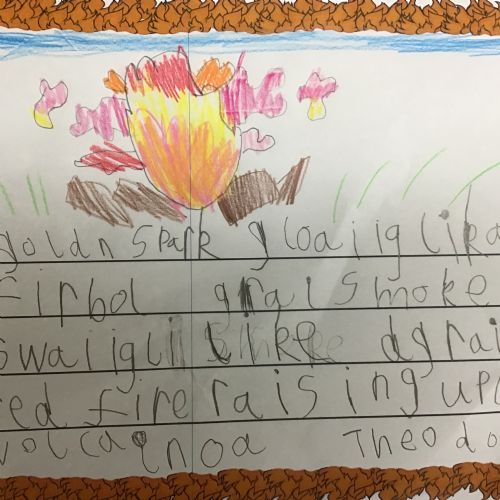 goldn spark gloaiig lika
firbol gral smoke
swaiigli like dgrai
red fire raising up
volcaqnoa Theodo